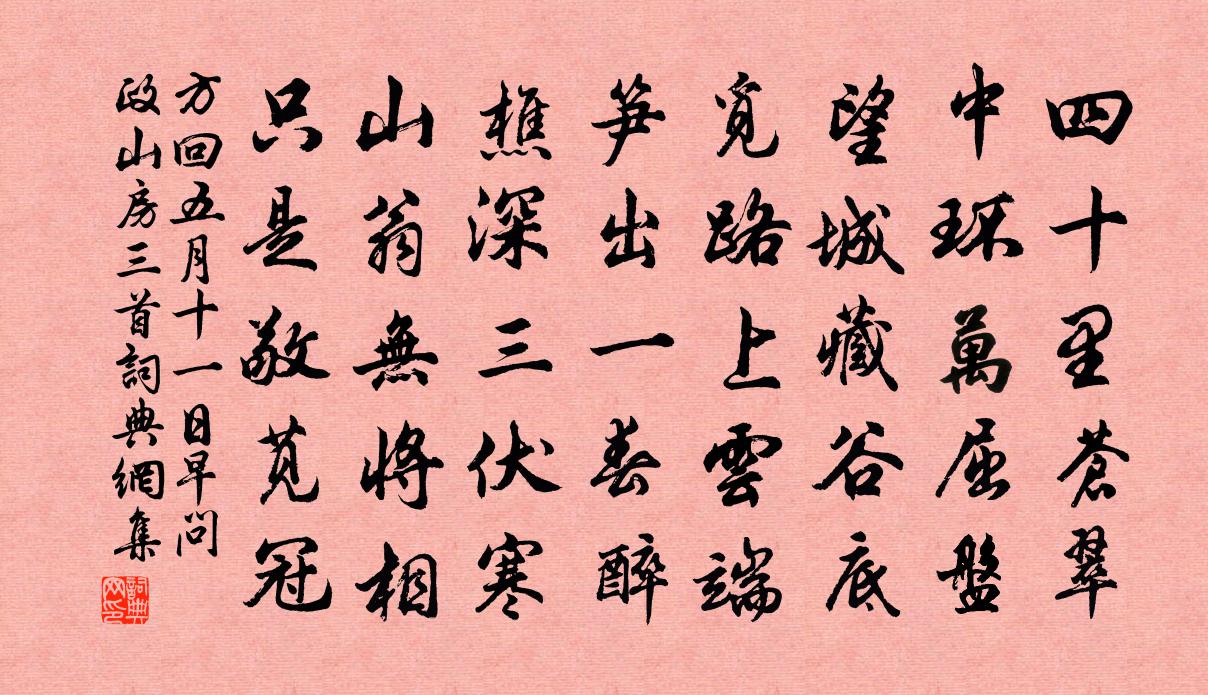 四十里蒼翠
中环萬屈盤
望城藏谷底
覓路上雲端
笋出一春醉
樵深三伏寒
山翁無將相
只是敬莧冠
方回五月十一日早問
政山房三首詞典網集
詞典
网印